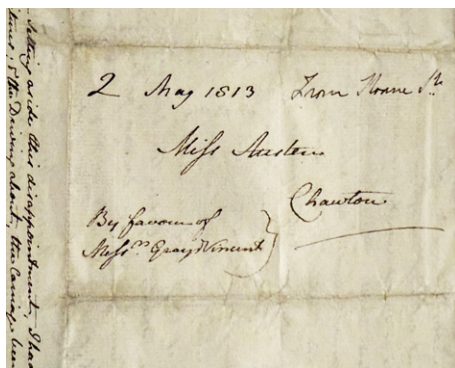 2 May 1813 From Sloane St.
Miſs Austen
Chawton
By favour of
Meſsrs Gray & Vincent
Setting aside this disappointment, I had
tures; & the Driving about, the Carriage been